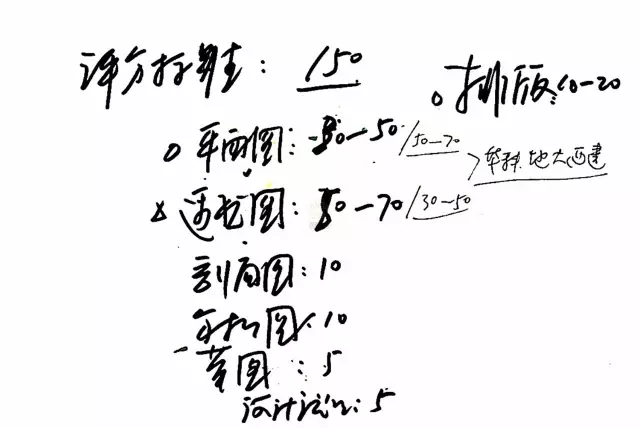 评分标准：150
。排版：10—20
○ 平面图：30—50/50—70
△ 透视图：50—70/30—50
>华科 地大 西建
剖面图：10
分析图：10
草图：5
设计说明：5